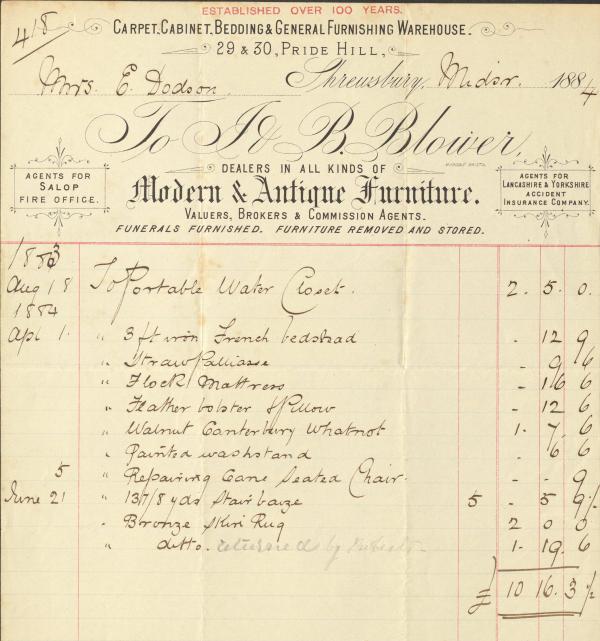 ESTABLISHED OVER 100 YEARS.
418
CARPET, CABINET, BEDDING & GENERAL FURNISHING WAREHOUSE.
29 & 30, PRIDE HILL,
Shrewsbury, Midsr. 1884
Mrs. E. Dodson.
To J & B. Blower,
DEALERS IN ALL KINDS OF
AGENTS FOR SALOP FIRE OFFICE.
Modern & Antique Furniture.
AGENTS FOR LANCASHIRE & YORKSHIRE ACCIDENT INSURANCE COMPANY.
VALUERS, BROKERS & COMMISSION AGENTS.
FUNERALS FURNISHED. FURNITURE REMOVED AND STORED.
1883
Aug 18 To Portable Water Closet. 2. 5. 0.
1884
Apl 1. " 3 ft iron French bedstead - 12 9
" Straw Palliasse - 9 6
" Flock Mattress - 16 6
" Feather bolster & Pillow - 12 6
" Walnut Canterbury Whatnot 1. 7. 6
" Painted washstand - 6 6
5 " Repairing Cane Seated Chair. - - 9
June 21 " 13 7/8 yds Stair baize 5 - 5 9½
" Bronze Skin Rug 2 0 0
" ditto. returned by 1. 19. 6
£ 10 16. 3½